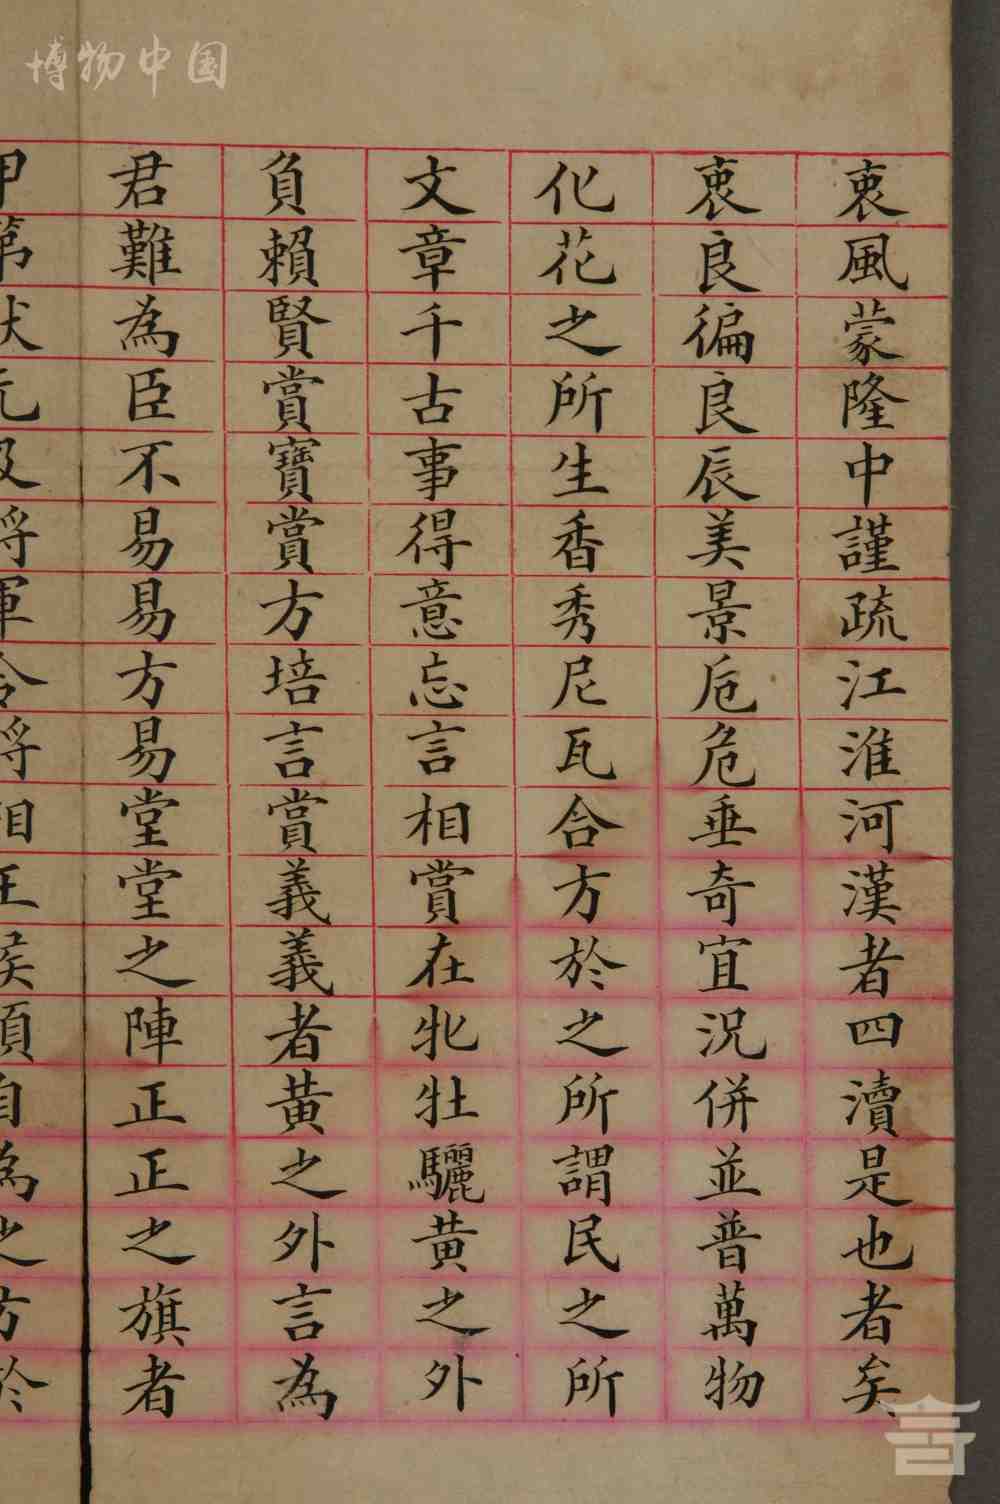 博物中国
衷風蒙隆中謹疏江淮河漢者四瀆是也者矣
衷良徧良辰美景卮危垂奇宜況併並普萬物
化花之所生香秀尼瓦合方於之所謂民之所
文章千古事得意忘言相賞在牝牡驪黄之外
負賴賢賞寶賞方培言賞義義者黄之外言為
君難為臣不易易方易堂堂之陣正正之旗者